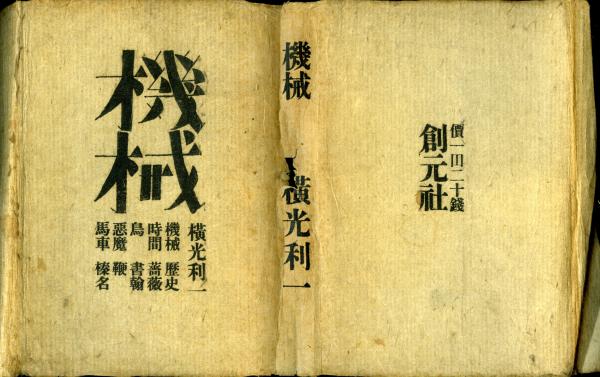 機械
横光利一
機械 歴史
時間 薔薇
鳥 書翰
惡魔 鞭
馬車 榛名
機械
横光利一
價一円二十錢
創元社